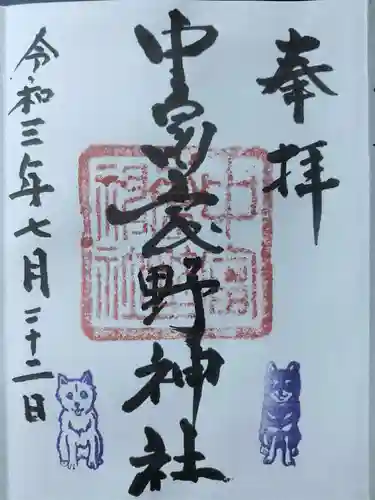 奉拝
中富良野神社
令和三年七月二十二日